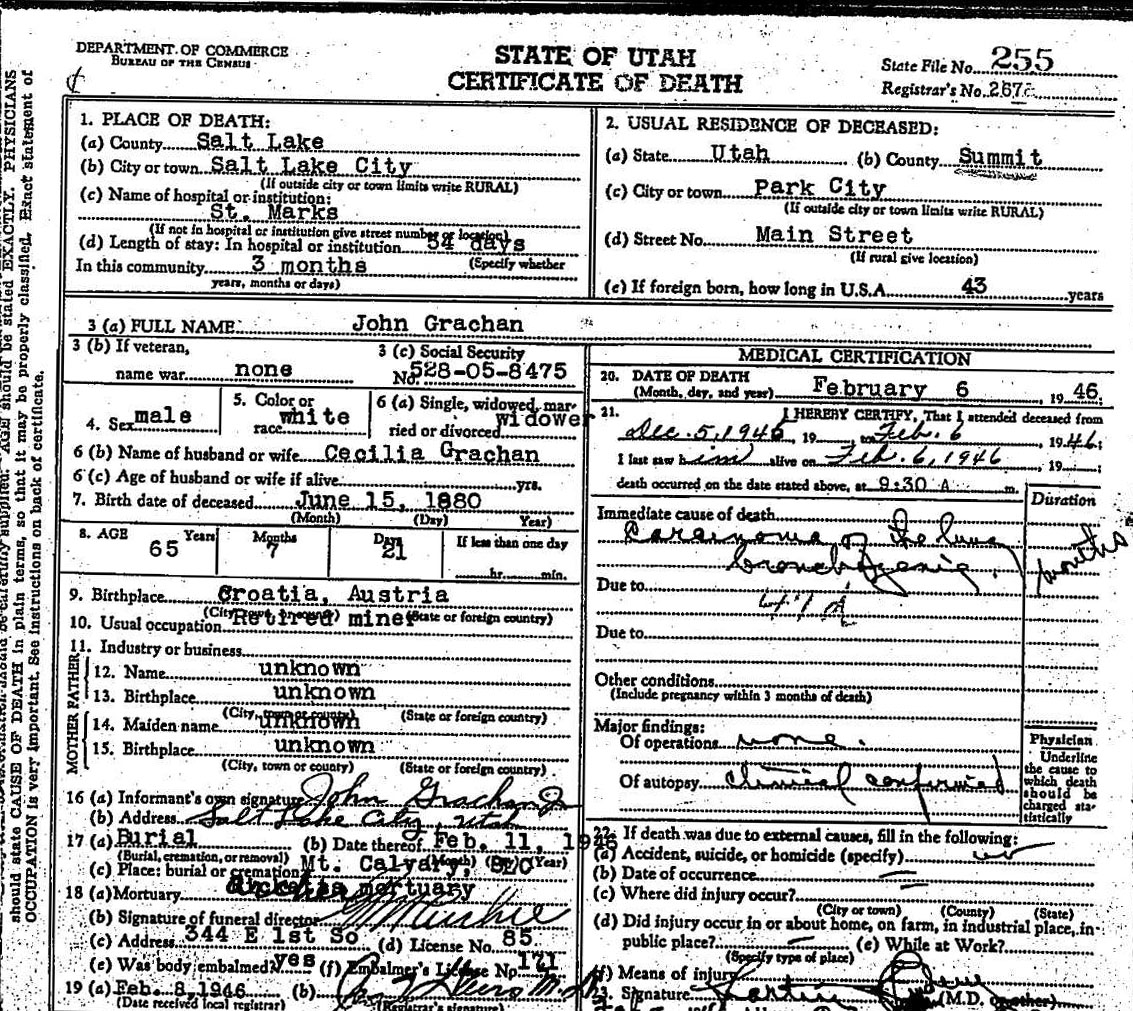 DEPARTMENT OF COMMERCE
BUREAU OF THE CENSUS
STATE OF UTAH
CERTIFICATE OF DEATH
State File No. 255
Registrar's No. 267
should state CAUSE OF DEATH in plain terms, so that it may be properly classified. Exact statement of
OCCUPATION is very important. See instructions on back of certificate.
AGE should be stated EXACTLY. PHYSICIANS
1. PLACE OF DEATH:
(a) County Salt Lake
(b) City or town Salt Lake City
(If outside city or town limits write RURAL)
(c) Name of hospital or institution:
St. Marks
(If not in hospital or institution give street number or location)
(d) Length of stay: In hospital or institution 54 days
In this community 3 months (Specify whether
years, months or days)
2. USUAL RESIDENCE OF DECEASED:
(a) State Utah (b) County Summit
(c) City or town Park City
(If outside city or town limits write RURAL)
(d) Street No. Main Street
(If rural give location)
(e) If foreign born, how long in U.S.A. 43 years
3 (a) FULL NAME John Grachan
3 (b) If veteran,
name war none
3 (c) Social Security
No. 528-05-8475
4. Sex male
5. Color or
race white
6 (a) Single, widowed, mar-
ried or divorced widower
6 (b) Name of husband or wife Cecilia Grachan
6 (c) Age of husband or wife if alive yrs.
7. Birth date of deceased June 15, 1880
(Month) (Day) Year)
8. AGE Years Months Days If less than one day
65 7 21
hr. min.
9. Birthplace Croatia, Austria
(City, town or county) (State or foreign country)
10. Usual occupation Retired miner
11. Industry or business
FATHER
12. Name unknown
13. Birthplace unknown
(City, town or county) (State or foreign country)
MOTHER
14. Maiden name unknown
15. Birthplace unknown
(City, town or county) (State or foreign country)
16 (a) Informant's own signature John Grachan Jr
(b) Address Salt Lake City, Utah
17 (a) Burial (b) Date thereof Feb. 11, 1946
(Burial, cremation, or removal) (Month) (Day) (Year)
(c) Place: burial or cremation Mt. Calvary, SLC
18 (a) Mortuary mortuary
(b) Signature of funeral director
(c) Address 344 E 1st So (d) License No. 85
(e) Was body embalmed? yes (f) Embalmer's License No 171
19 (a) Feb. 8, 1946 (b)
(Date received local registrar) (Registrar's signature)
MEDICAL CERTIFICATION
20. DATE OF DEATH
(Month, day, and year) February 6, 1946.
21. I HEREBY CERTIFY, That I attended deceased from
Dec. 5, 1946, 19 to Feb. 6, 1946;
I last saw him alive on Feb. 6, 1946, 19 ;
death occurred on the date stated above, at 9:30 A m.
Duration
Immediate cause of death
Carcinoma of the lung months
bronchogenic.
Due to
Due to
Other conditions
(Include pregnancy within 3 months of death)
Major findings:
Of operations none.
Of autopsy clinical confirmed
Physician
Underline
the cause to
which death
should be
charged sta-
tistically
22. If death was due to external causes, fill in the following:
(a) Accident, suicide, or homicide (specify)
(b) Date of occurrence
(c) Where did injury occur?
(City or town) (County) (State)
(d) Did injury occur in or about home, on farm, in industrial place, in
public place? (e) While at Work?
(Specify type of place)
(f) Means of injury
23. Signature (M.D. or other)